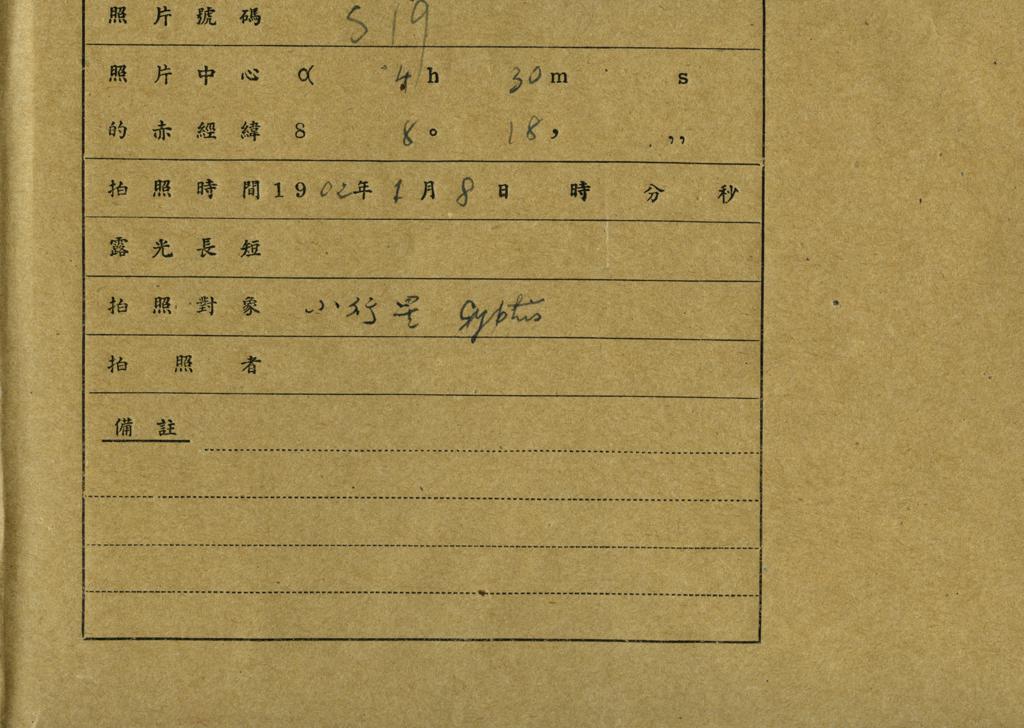 照片號碼 S19
照片中心 α 4h 30m s
的赤經緯 δ 8° 18' ,,
拍照時間 1902年 1月 8日 時 分 秒
露光長短
拍照對象 小行星 Gyptis
拍照者
備註